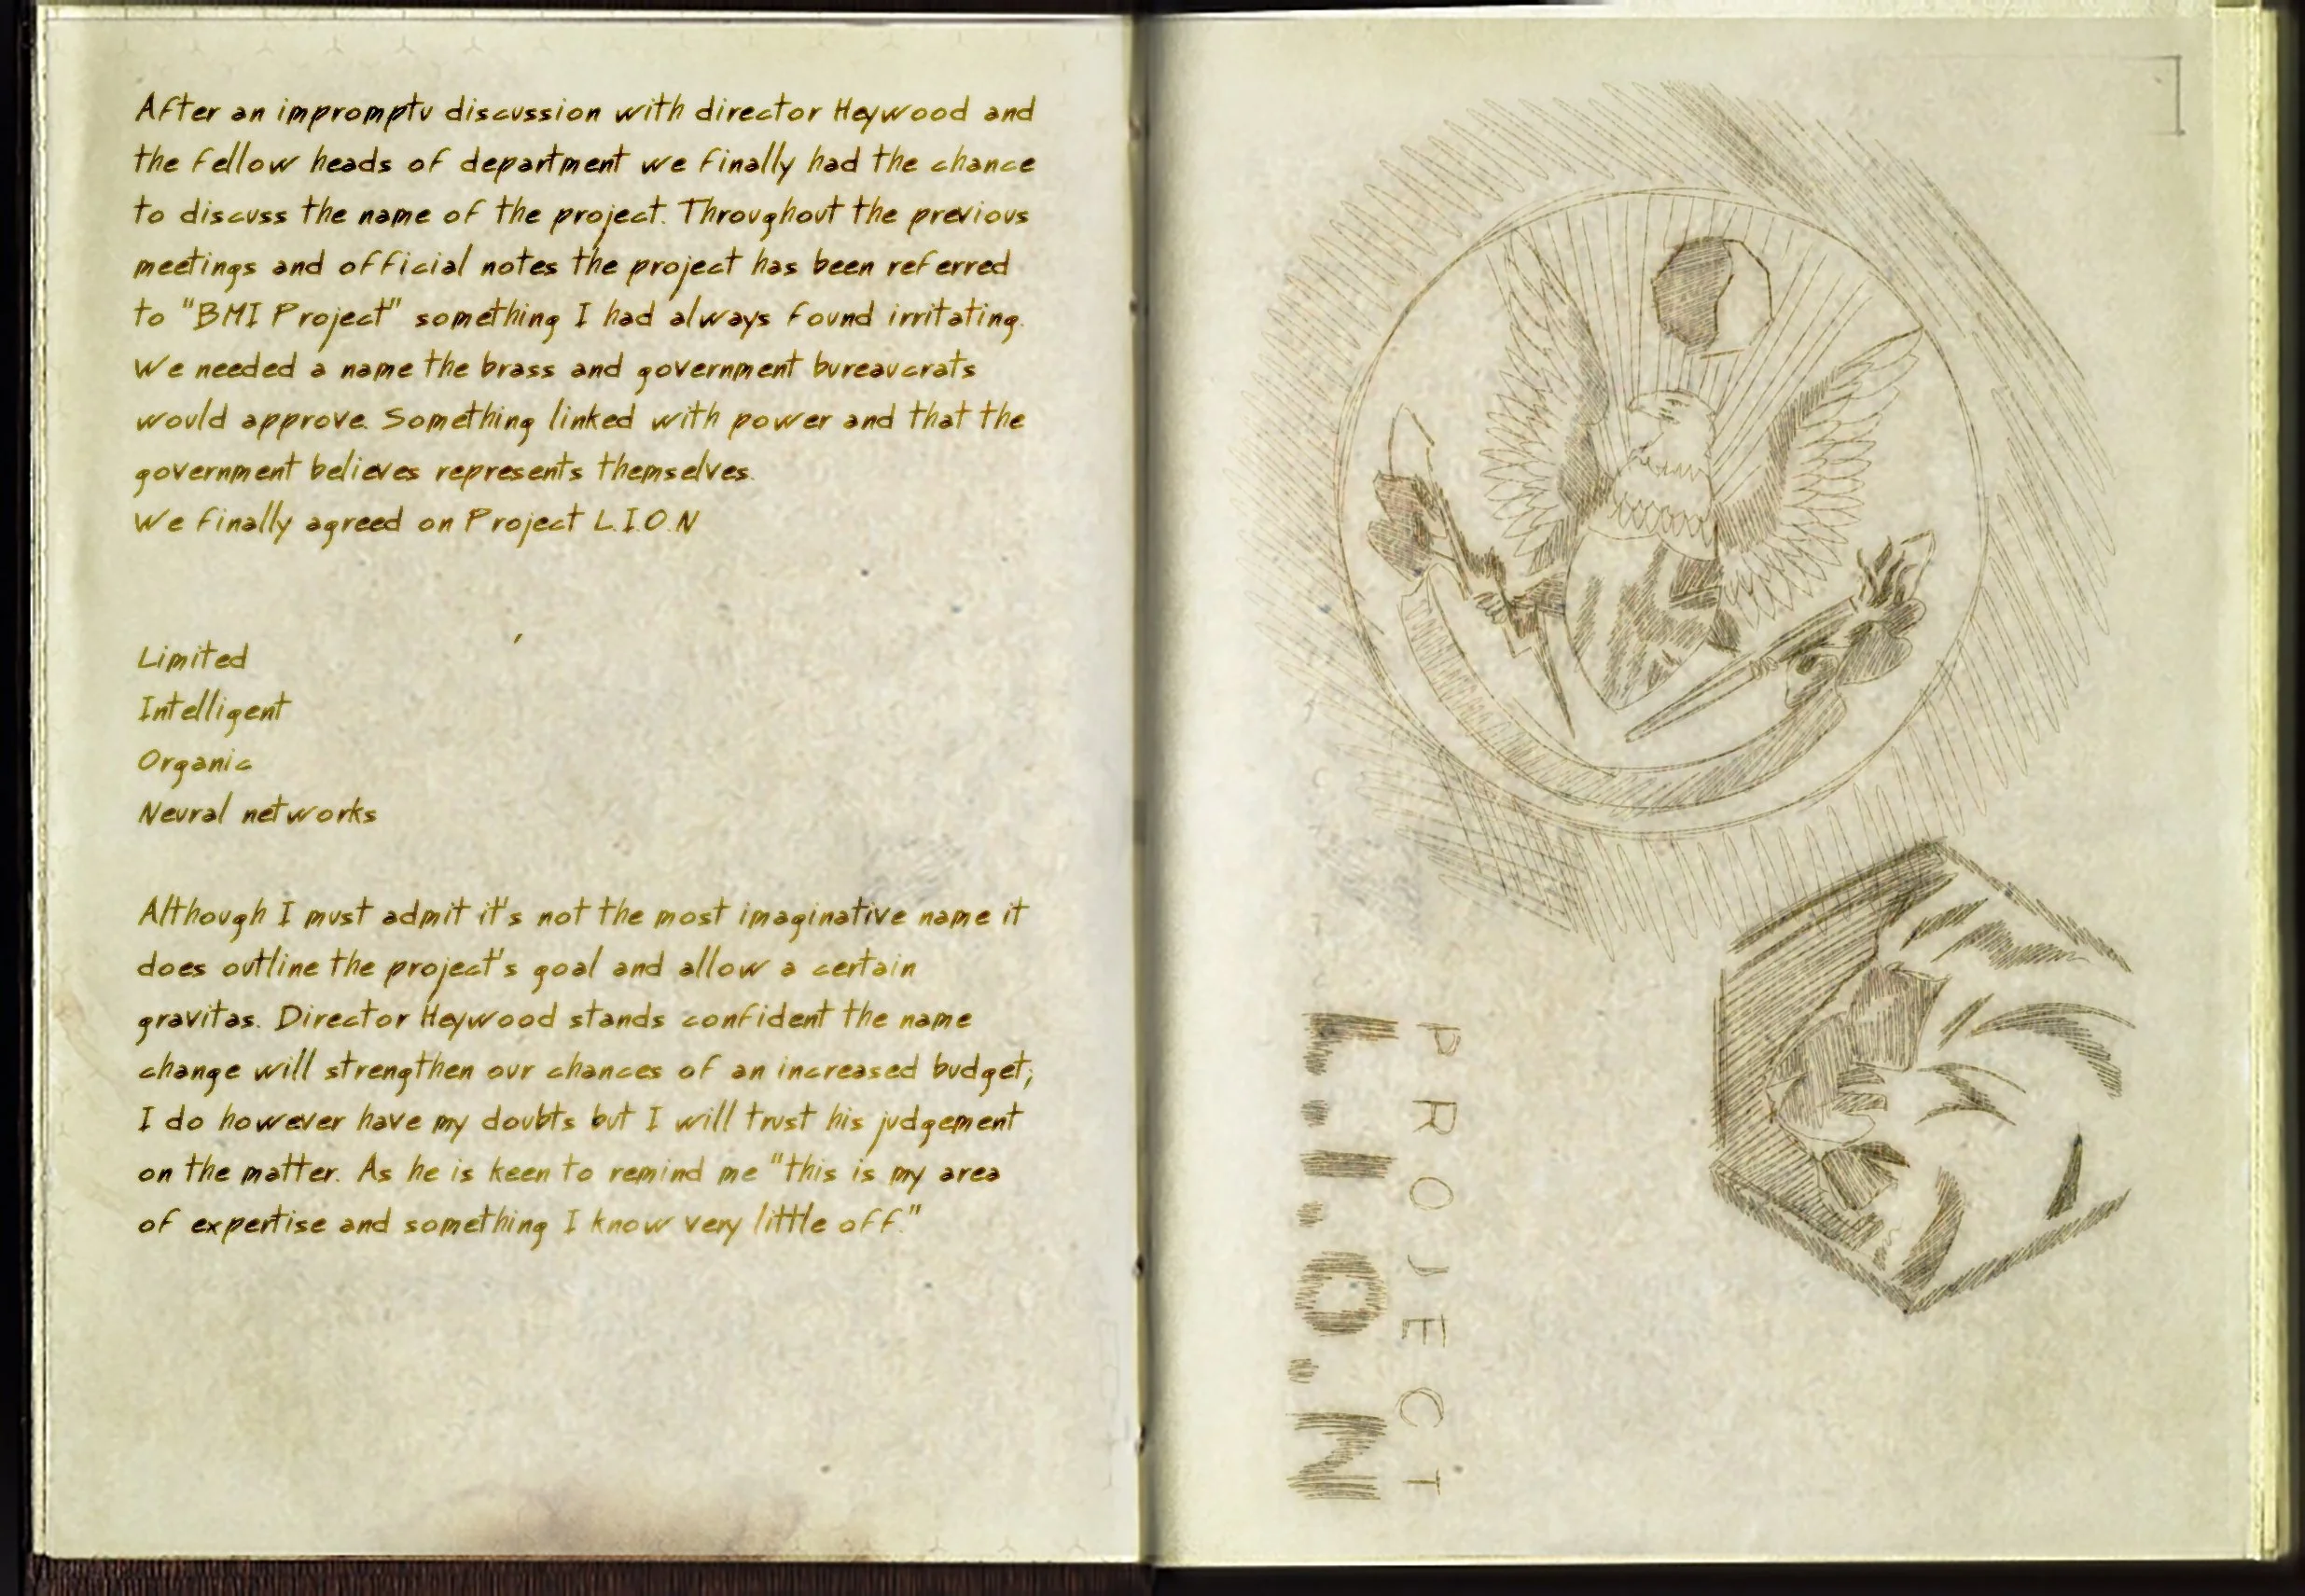 After an impromptu discussion with director Heywood and
the fellow heads of department we finally had the chance
to discuss the name of the project. Throughout the previous
meetings and official notes the project has been referred
to "BMI Project" something I had always found irritating.
We needed a name the brass and government bureaucrats
would approve. Something linked with power and that the
government believes represents themselves.
We finally agreed on Project L.I.O.N
Limited
Intelligent
Organic
Neural networks
Although I must admit it's not the most imaginative name it
does outline the project's goal and allow a certain
gravitas. Director Heywood stands confident the name
change will strengthen our chances of an increased budget;
I do however have my doubts but I will trust his judgement
on the matter. As he is keen to remind me "this is my area
of expertise and something I know very little off."
PROJECT
L.I.O.N